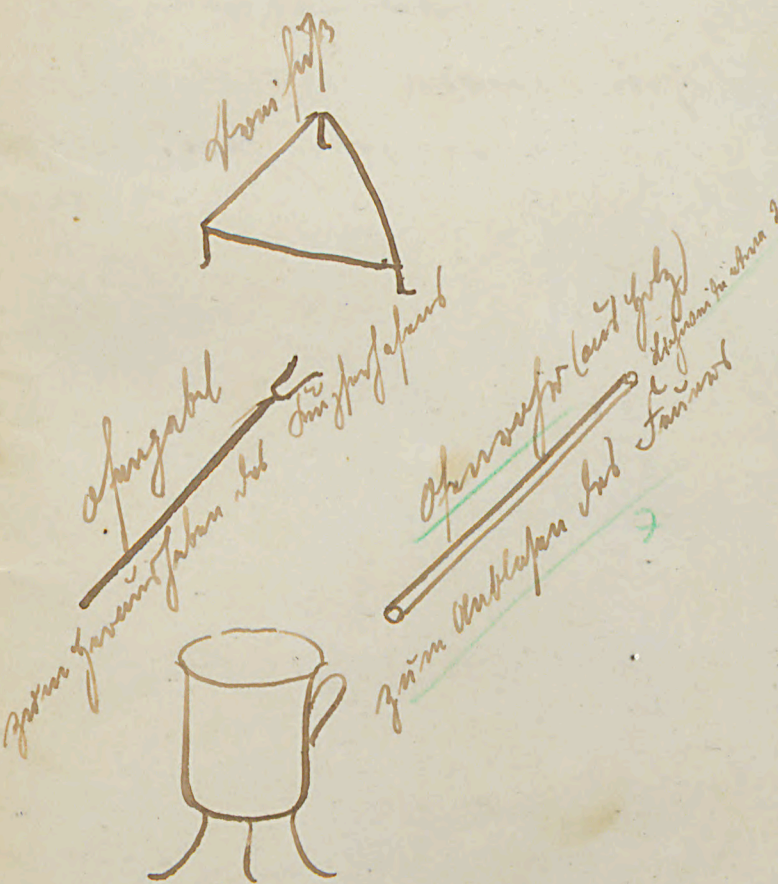 Dreifuß
Ofengabel
zum Herausheben des Kupferhafens
Ofenrohr (aus Holz)
zum Anblasen des Feuers